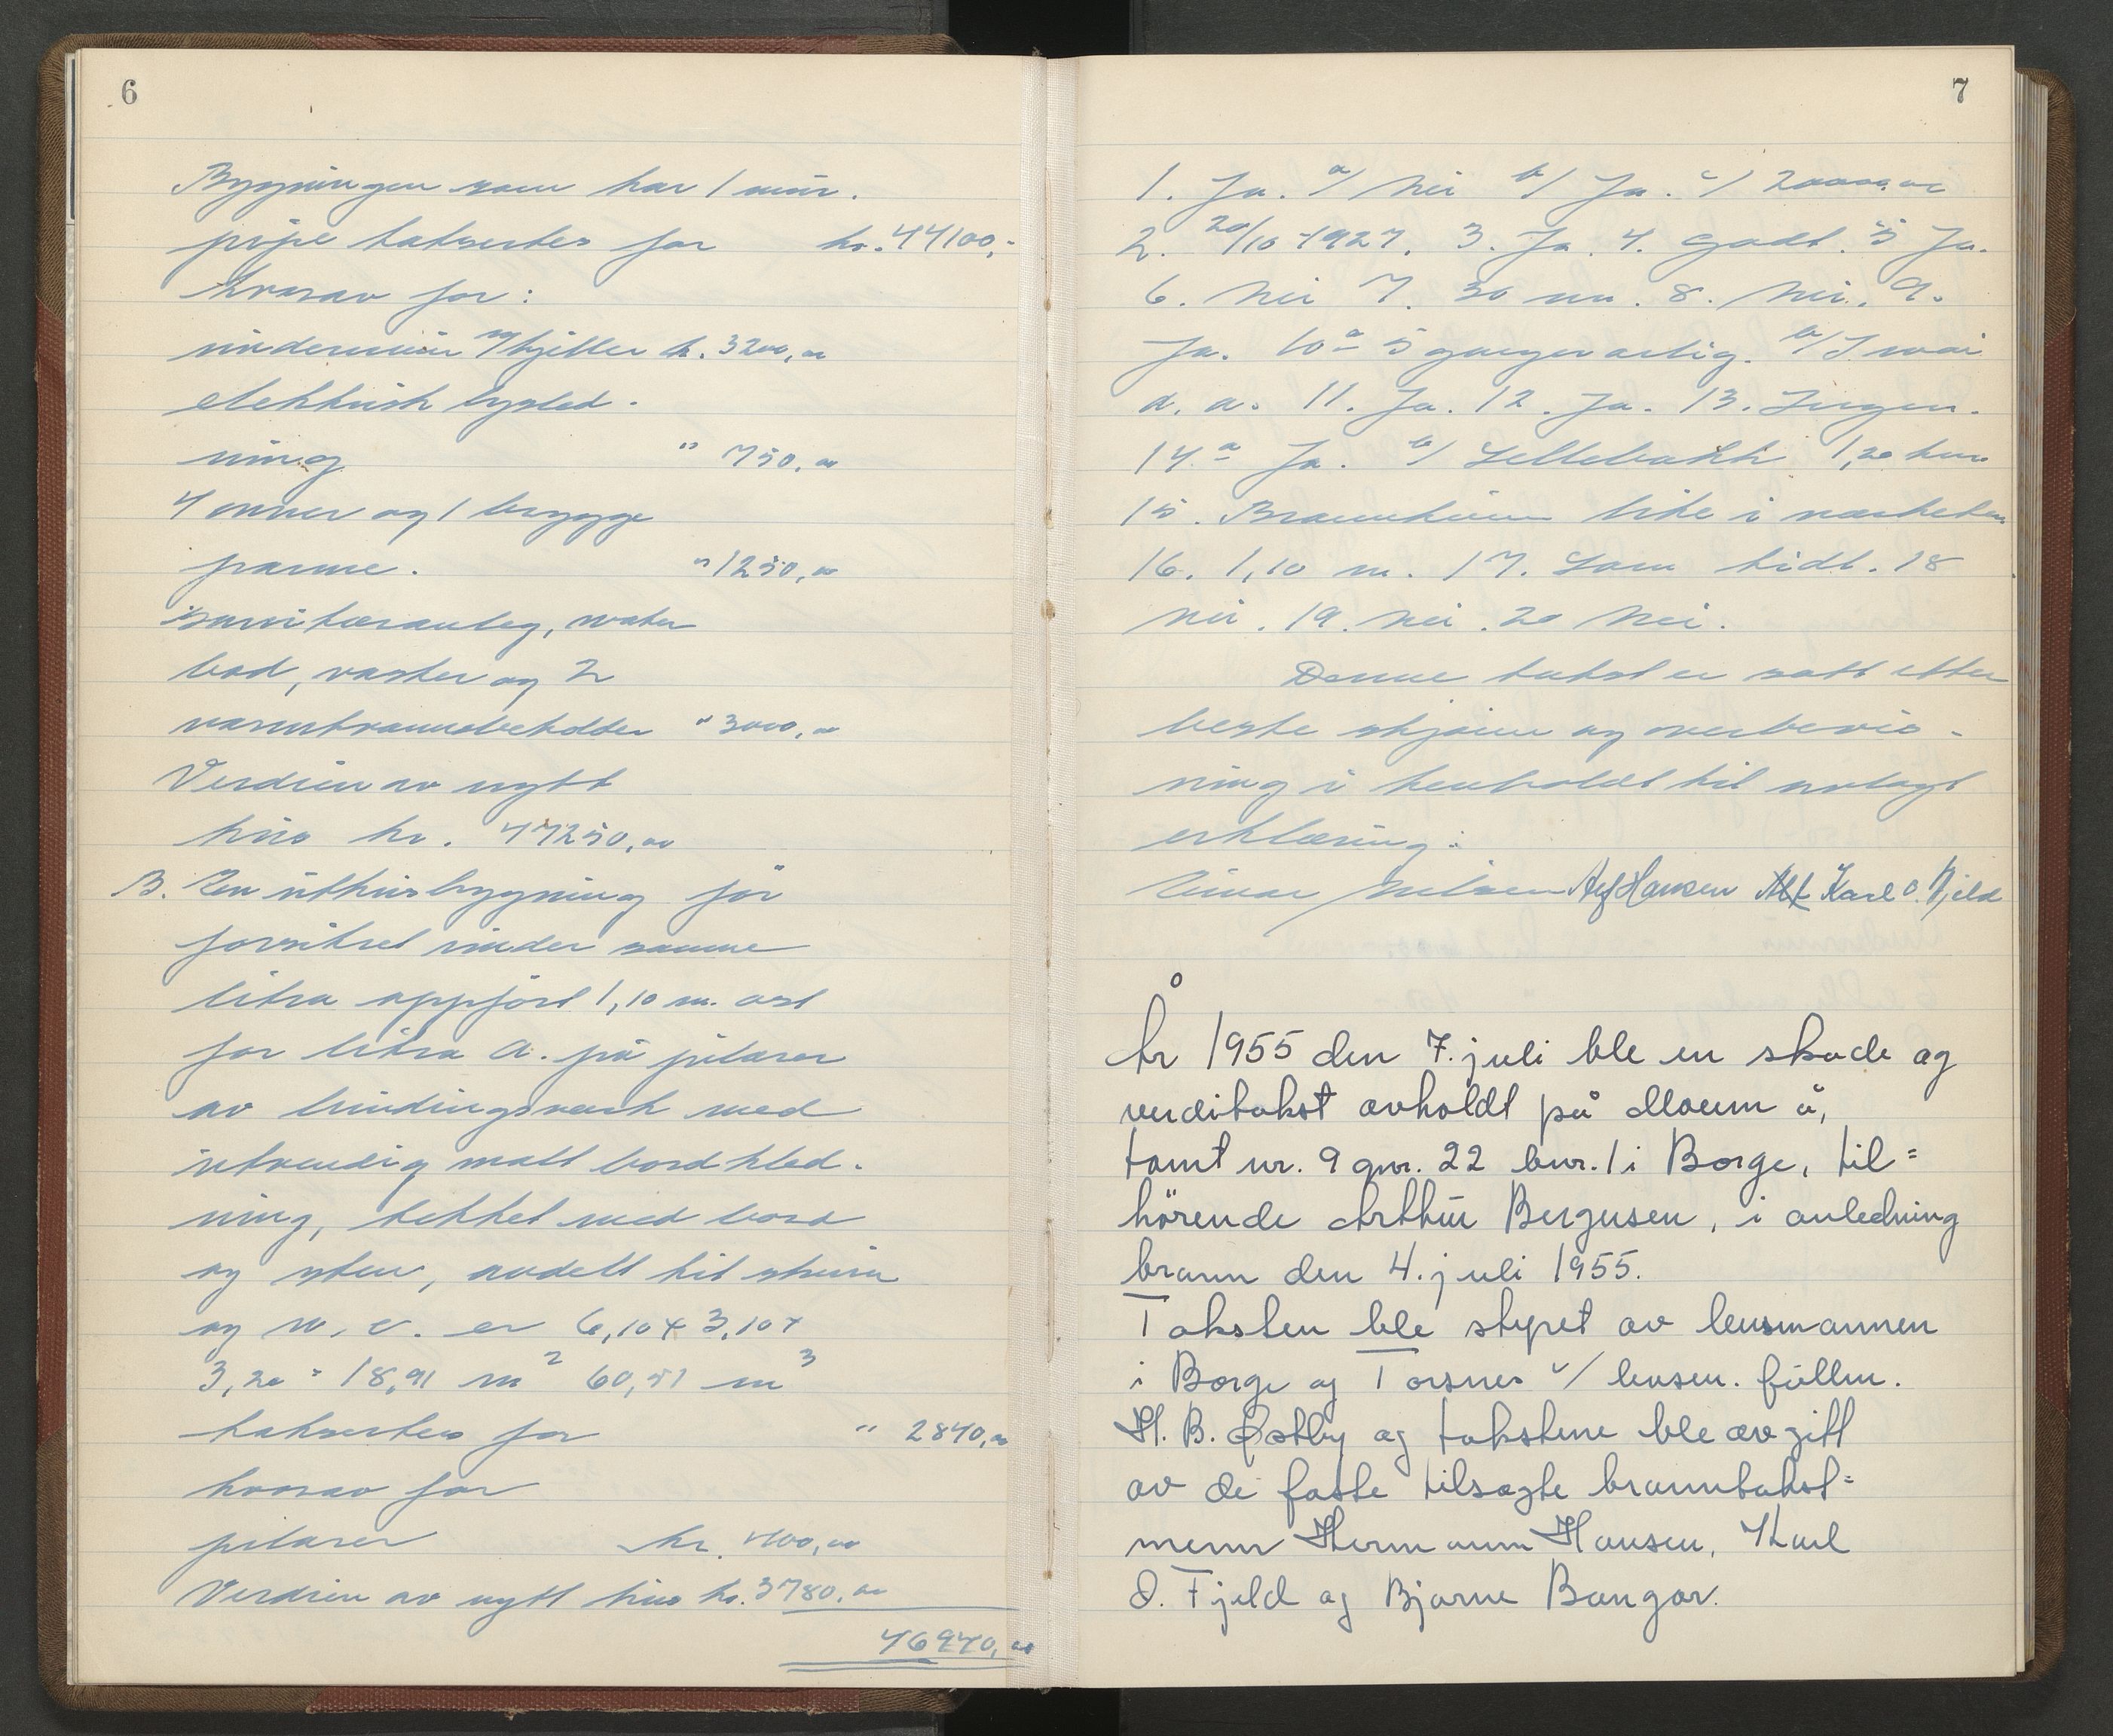 6
Bygningen som har 1 mur-
pipe taksertes for kr. 44100,-
hvorav for:
undermur m/kjeller kr. 3200,00
elektrisk lysled-
ning " 750,00
4 ovner og 1 brygge
panne. " 1250,00
sanitæranleg, water
bad, vasker og 2
varmtvannsbeholder " 3000,00
Verdien av nytt
hus kr. 47250,00
B. En uthusbygning før
forsikret under samme
litra oppført 1,10 m. øst
for litra A. på pilarer
av bindingsverk med
utvendig malt bordkled-
ning, tekket med bord
og sten, avdelt til skur
og w.c. er 6,10 x 3,10 x
3,20 = 18,91 m² 60,51 m³
taksertes for " 2840,00
hvorav for
pilarer kr. 400,00
Verdien av nytt hus kr. 3780,00
46940,00
7
1. Ja. a/ Nei b/ Ja. c/ 20000,00
2. 20/10-1927. 3. Ja. 4. Godt. 5 Ja.
6. Nei 7. 30 m. 8. Nei. 9.
Ja. 10 a 5 ganger årlig. b/ I mai
d. a. 11. Ja. 12. Ja. 13. Ingen.
14 a Ja. b/ Sellebakk 1,20 km
15. Brannkum like i nærheten
16. 1,10 m. 17. Som tidl. 18
Nei. 19. Nei. 20 Nei.
Denne takst er satt etter
beste skjønn og overbevis-
ning i henhold til avlagt
erklæring.
Einar Nilsen Alf Hansen Karl O. Fjeld
År 1955 den 7. juli ble en skade og
verditakst avholdt på Moum ø,
tomt nr. 9 gnr. 22 bnr. 1 i Borge, til=
hörende Arthur Bergersen, i anledning
brann den 4. juli 1955.
Taksten ble styret av lensmannen
i Borge og Torsnes v/ lensm. fullm.
H. B. Østby og takstene ble avgitt
av de faste tilsagte branntakst=
menn Hermann Hansen, Karl
O. Fjeld og Bjarne Bangor.